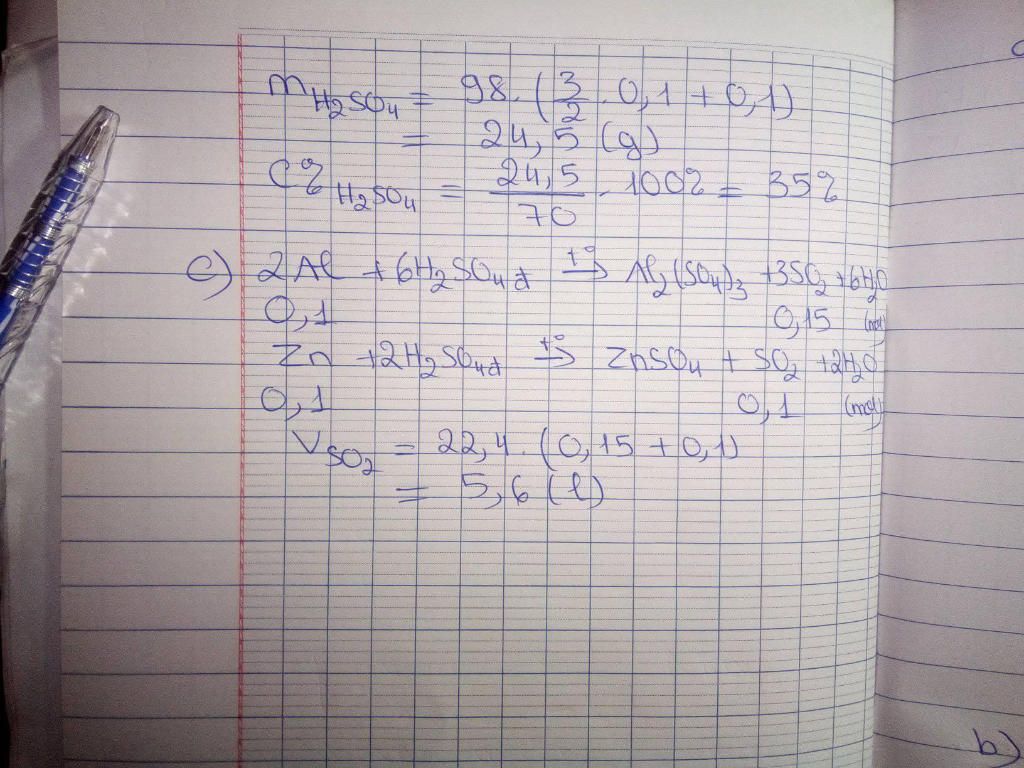 mH₂SO₄ = 98.(3/2.0,1+0,1)
= 24,5 (g)
C% H₂SO₄ = 24,5/70 . 100% = 35%
c) 2Al + 6H₂SO₄đ t°→ Al₂(SO₄)₃ +3SO₂ +6H₂O
0,1 0,15 (mol)
Zn +2H₂SO₄đ t°→ ZnSO₄ + SO₂ +2H₂O
0,1 0,1 (mol)
VSO₂ = 22,4.(0,15 + 0,1)
= 5,6 (l)
b)